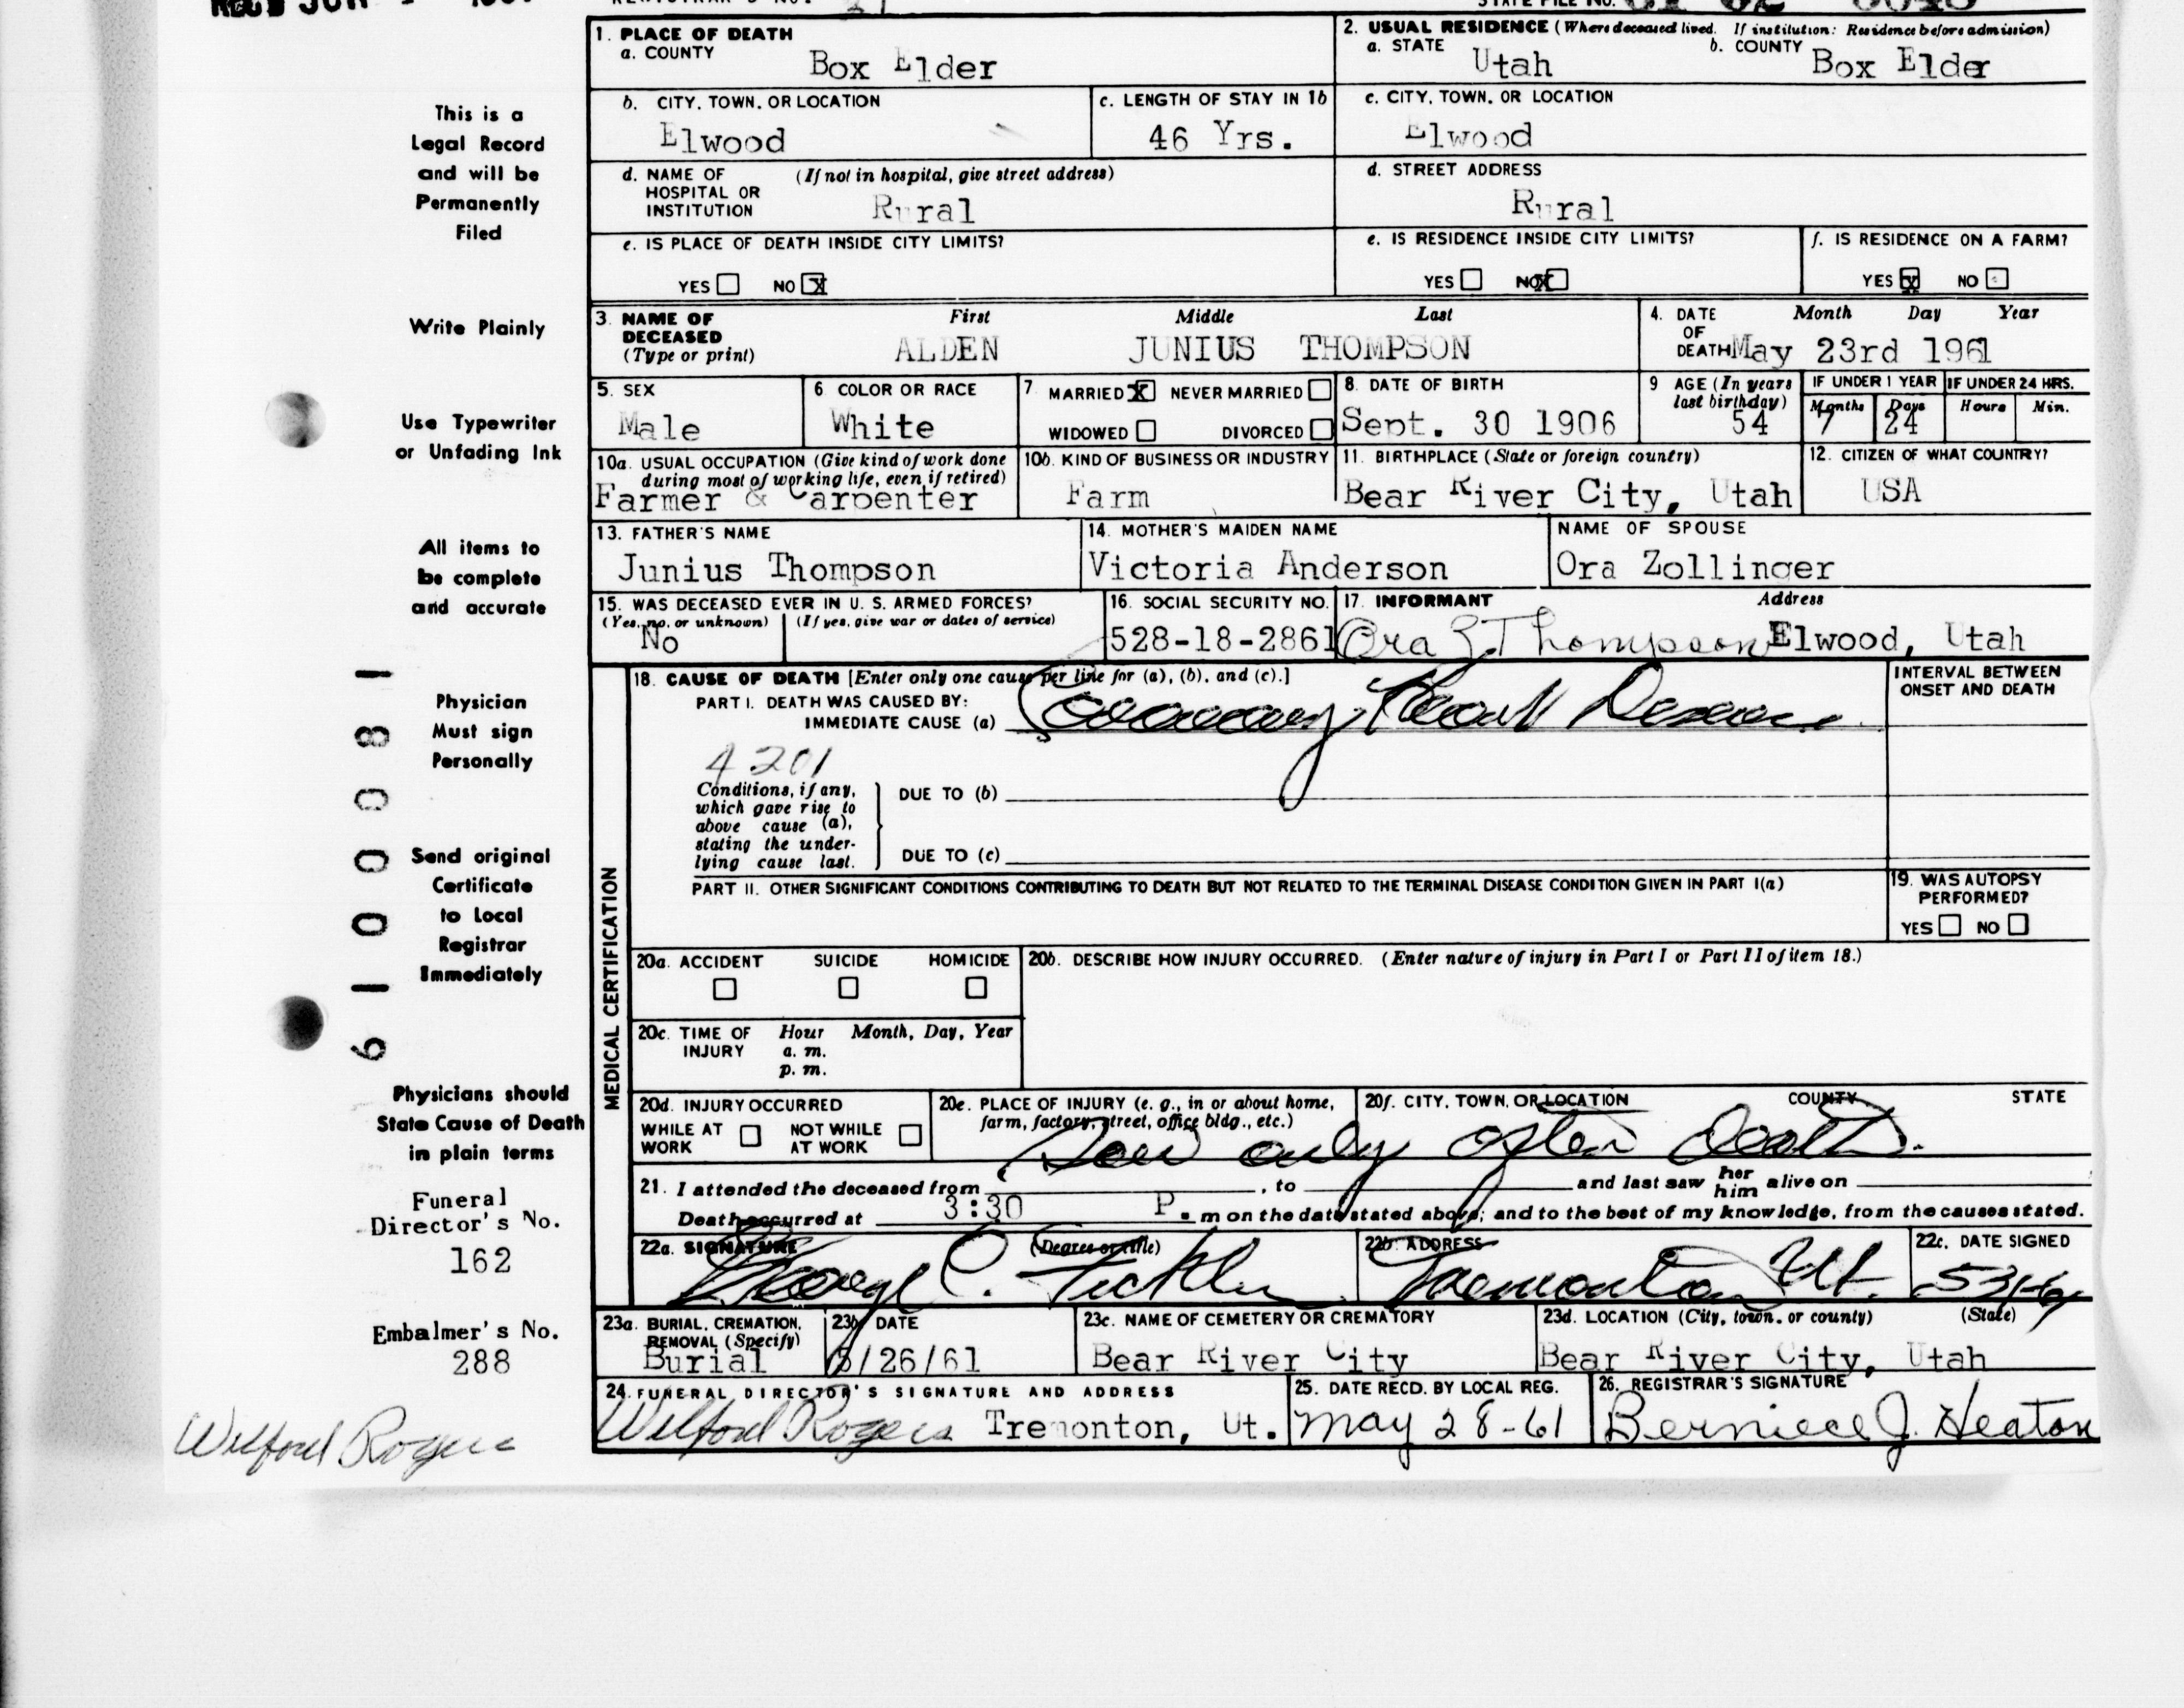 REGISTRAR'S NO. 41
STATE FILE NO.
1. PLACE OF DEATH
a. COUNTY
Box Elder
2. USUAL RESIDENCE (Where deceased lived. If institution: Residence before admission)
a. STATE b. COUNTY
Utah Box Elder
b. CITY, TOWN, OR LOCATION
Elwood
c. LENGTH OF STAY IN 1b
46 Yrs.
c. CITY, TOWN, OR LOCATION
Elwood
d. NAME OF (If not in hospital, give street address)
HOSPITAL OR
INSTITUTION Rural
d. STREET ADDRESS
Rural
e. IS PLACE OF DEATH INSIDE CITY LIMITS?
YES NO X
e. IS RESIDENCE INSIDE CITY LIMITS?
YES NO X
f. IS RESIDENCE ON A FARM?
YES X NO
3. NAME OF First Middle Last
DECEASED
(Type or print) ALDEN JUNIUS THOMPSON
4. DATE Month Day Year
OF
DEATH May 23rd 1961
5. SEX
Male
6 COLOR OR RACE
White
7 MARRIED X NEVER MARRIED
WIDOWED DIVORCED
8. DATE OF BIRTH
Sept. 30 1906
9 AGE (In years
last birthday)
54
IF UNDER 1 YEAR
Months Days
7 24
IF UNDER 24 HRS.
Hours Min.
10a. USUAL OCCUPATION (Give kind of work done
during most of working life, even if retired)
Farmer & Carpenter
10b. KIND OF BUSINESS OR INDUSTRY
Farm
11. BIRTHPLACE (State or foreign country)
Bear River City, Utah
12. CITIZEN OF WHAT COUNTRY?
USA
13. FATHER'S NAME
Junius Thompson
14. MOTHER'S MAIDEN NAME
Victoria Anderson
NAME OF SPOUSE
Ora Zollinger
15. WAS DECEASED EVER IN U. S. ARMED FORCES?
(Yes, no, or unknown) (If yes, give war or dates of service)
No
16. SOCIAL SECURITY NO.
528-18-2861
17. INFORMANT Address
Ora Z. Thompson Elwood, Utah
MEDICAL CERTIFICATION
18. CAUSE OF DEATH [Enter only one cause per line for (a), (b), and (c).]
PART I. DEATH WAS CAUSED BY:
IMMEDIATE CAUSE (a) Coronary Heart Disease
INTERVAL BETWEEN
ONSET AND DEATH
4201
Conditions, if any,
which gave rise to
above cause (a),
stating the under-
lying cause last.
DUE TO (b)
DUE TO (c)
PART II. OTHER SIGNIFICANT CONDITIONS CONTRIBUTING TO DEATH BUT NOT RELATED TO THE TERMINAL DISEASE CONDITION GIVEN IN PART I(a)
19. WAS AUTOPSY
PERFORMED?
YES NO
20a. ACCIDENT SUICIDE HOMICIDE
20b. DESCRIBE HOW INJURY OCCURRED. (Enter nature of injury in Part I or Part II of item 18.)
20c. TIME OF Hour Month, Day, Year
INJURY a. m.
p. m.
20d. INJURY OCCURRED
WHILE AT NOT WHILE
WORK AT WORK
20e. PLACE OF INJURY (e. g., in or about home,
farm, factory, street, office bldg., etc.)
20f. CITY, TOWN, OR LOCATION COUNTY STATE
Saw only after death.
21. I attended the deceased from , to and last saw her him alive on
Death occurred at 3:30 P. m on the date stated above; and to the best of my knowledge, from the causes stated.
22a. SIGNATURE (Degree or title)
22b. ADDRESS
Tremonton Ut.
22c. DATE SIGNED
23a. BURIAL, CREMATION,
REMOVAL (Specify)
Burial
23b DATE
5/26/61
23c. NAME OF CEMETERY OR CREMATORY
Bear River City
23d. LOCATION (City, town, or county) (State)
Bear River City, Utah
24. FUNERAL DIRECTOR'S SIGNATURE AND ADDRESS
Wilford Rogers Tremonton, Ut.
25. DATE RECD. BY LOCAL REG.
May 28-61
26. REGISTRAR'S SIGNATURE
Berniece J. Heaton
This is a
Legal Record
and will be
Permanently
Filed
Write Plainly
Use Typewriter
or Unfading Ink
All items to
be complete
and accurate
Physician
Must sign
Personally
Send original
Certificate
to Local
Registrar
Immediately
Physicians should
State Cause of Death
in plain terms
Funeral
Director's No.
162
Embalmer's No.
288
Wilford Rogers
61 0 0 0 8 1